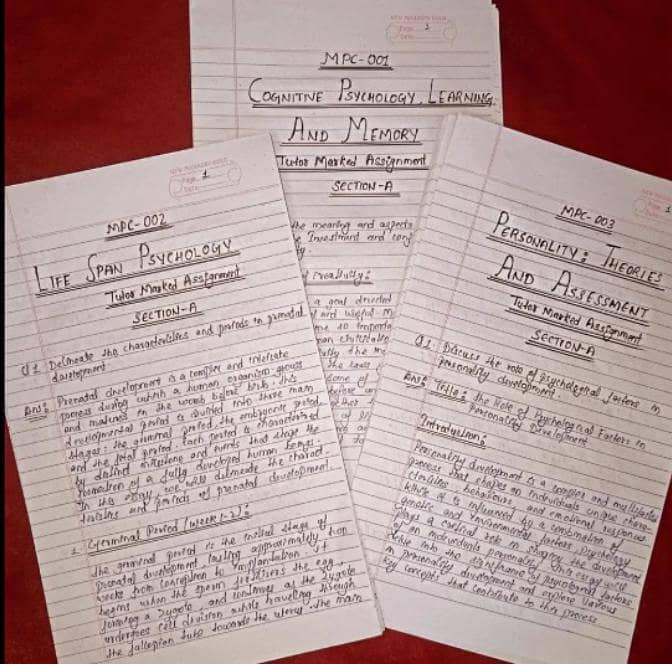 MPC-001
COGNITIVE PSYCHOLOGY, LEARNING
AND MEMORY
Tutor Marked Assignment
SECTION-A
the meaning and aspects
Investment and
Creativity:
a goal directed
and useful
MPC-002
LIFE SPAN PSYCHOLOGY
Tutor Marked Assignment
SECTION-A
Q1 Delineate the characteristics and periods in prenatal
development.
Ans: Prenatal development is a complex and intricate
process during which a human organism grows
and matures in the womb before birth. This
developmental period is divided into three main
stages: the germinal period, the embryonic period,
and the fetal period. Each period is characterized
by distinct milestone and events that shape the
formation of a fully developed human beings.
In this essay, we will delineate the charact-
teristics and periods of prenatal development.
1. Germinal Period (week 1-2):
The germinal period is the initial stage of
prenatal development lasting approximately two
weeks from conception to implantation. It
begins when the sperm fertilizers the egg,
forming a zygote, and continues as the zygote
undergoes cell division while traveling through
the fallopian tube towards the uterus. The main
MPC-003
PERSONALITY: THEORIES
AND ASSESSMENT
Tutor Marked Assignment
SECTION-A
Q1. Discuss the role of psychological factors in
personality development.
Ans: Title: The Role of Psychological Factors in
Personality Development
Introduction:
Personality development is a complex and multifaceted
process that shapes an individuals unique charac-
teristics, behaviours and emotional responses.
While it is influenced by a combination of
genetic and environmental factors, psychology
plays a critical role in shaping the development
of an individuals personality. This essay will
delve into the significance of psychological factors
in personality development and explore various
key concepts that contribute to this process.